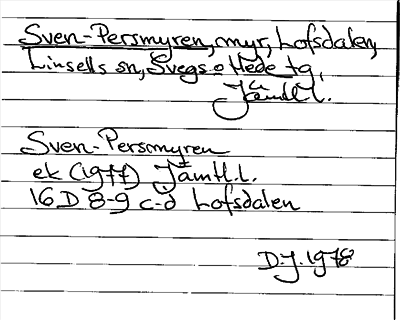 Sven-Persmyren, myr, Lofsdalen,
Linsells sn, Svegs o Hede tg,
Jämtl.
Sven-Persmyren
ek (1977) Jämtl.l.
16 D 8-9 c-d Lofsdalen
D-J. 1978